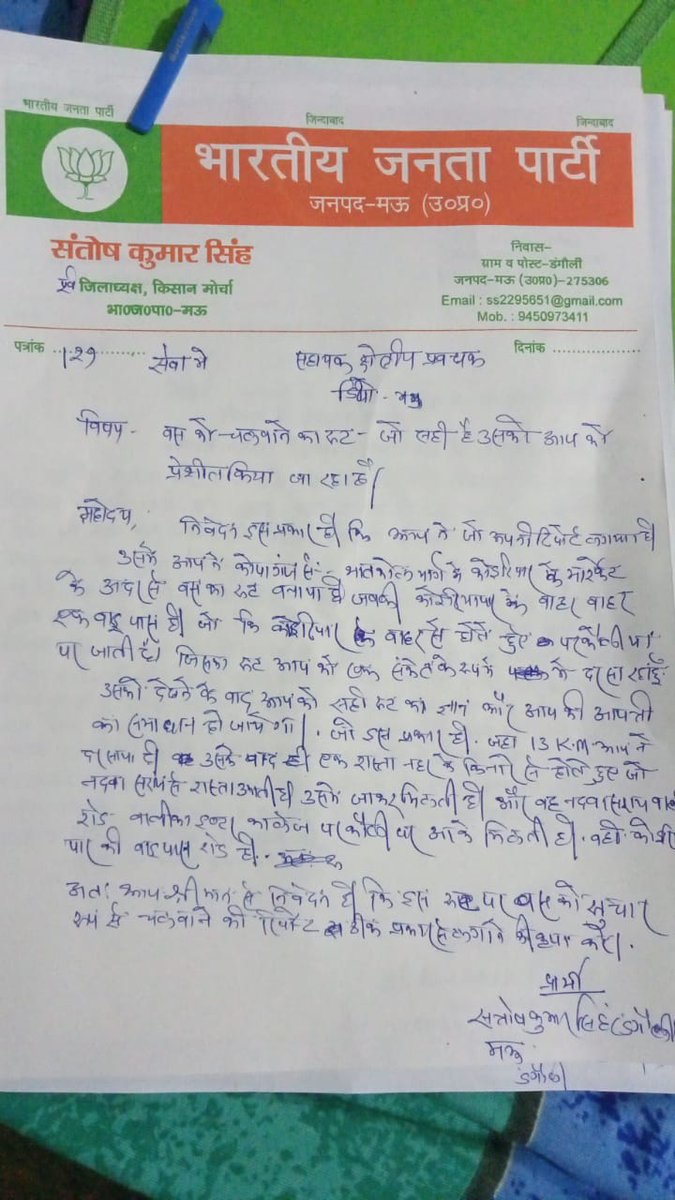 भारतीय जनता पार्टी
जिन्दाबाद
जिन्दाबाद
भारतीय जनता पार्टी
जनपद-मऊ (उ०प्र०)
संतोष कुमार सिंह
पूर्व जिलाध्यक्ष, किसान मोर्चा
भा०ज०पा०-मऊ
निवास-
ग्राम व पोस्ट-डंगौली
जनपद-मऊ (उ०प्र०)-275306
Email : ss2295651@gmail.com
Mob. : 9450973411
पत्रांक 129 दिनांक
सेवा मे सहायक क्षेत्रीय प्रबन्धक
डिपो - मऊ
विषय - बस को चलवाने का रूट - जो सही है उसको आप को
प्रेशीत किया जा रहा है।
महोदय,
निवेदन इस प्रकार है कि आप ने जो अपनी रिपोर्ट लगाया है
उसमे आप ने कोपागंज से - भातकोल मार्ग मे कोइरियापार के मार्केट
के अन्दर से बस का रूट बताया है जबकी कोइरियापार के बाहर बाहर
एक बाइ पास है। जो कि कोइरियापार के बाहर से होते हुए
पर जाती है। जिसका रूट आप को एक संकेत के रूप मे दरसा रहा हूँ
उसको देखने के बाद आप को सही रूट का ज्ञान और आप की आपती
का समाधान हो जायेगा। जो इस प्रकार है। जहा 13 K.M आप ने
दरसाया है उसके बाद ही एक रास्ता नहर के किनारे से होते हुए जो
नदवा सराय से रास्ता आती है उसमे जाकर मिलती है। और वह नदवा सराय वाली
रोड बालीका इण्टर कालेज पर आके मिलती है। वही कोइरिया
पार की बाइपास रोड है।
अतः आप श्रीमान से निवेदन है कि इस रूट पर बस को सुचार
रूप से चलवाने की रिपोर्ट ठीक प्रकार से लगाने की कृपा करें।
प्रार्थी
सन्तोष कुमार सिंह डंगौली
मऊ
डंगौली